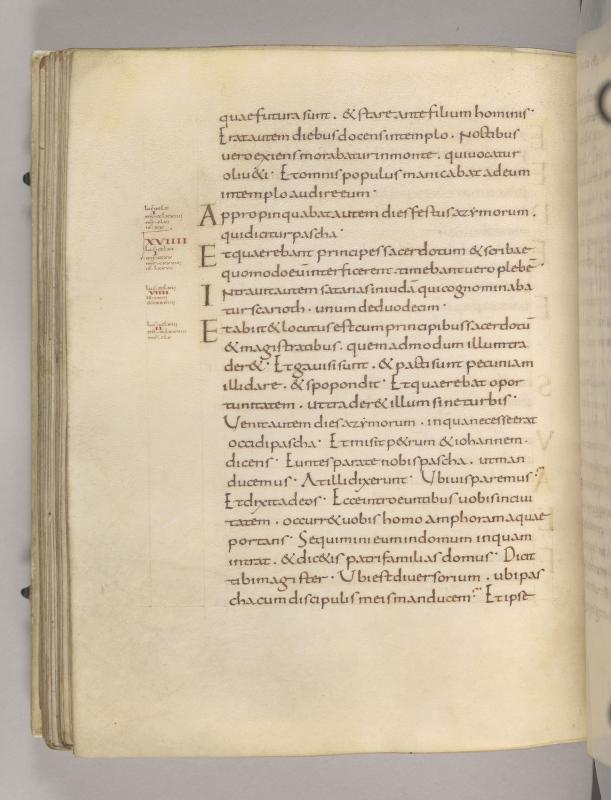 quae futura sunt. & stare ante filium hominis·
Erat autem diebus docens in templo. Noctibus
uero exiens morabatur in monte. qui uocatur
oliu&i· Et omnis populus manicabat ad eum
in templo audire eum·
Appropinquabat autem dies festus azymorum.
qui dicitur pascha·
XVIIII
Et quaerebant principes sacerdotum & scribae
quomodo eū interficerent· timebant uero plebē·
Intrauit autem satanas in iudā qui cognominaba
tur scarioth. unum de duodecim·
VIIII
Et abiit & locutus est cum principibus sacerdotū
& magistratibus. quemadmodum illum tra
der&· Et gauisi sunt. & pacti sunt pecuniam
illi dare. & spopondit· Et quaerebat opor
tunitatem. ut trader& illum sine turbis·
Venit autem dies azymorum. in qua necesse erat
occidi pascha· Et misit p&rum & iohannem.
dicens· Euntes parate nobis pascha. ut man
ducemus· At illi dixerunt· Vbi uis paremus
Et dixit ad eos· Ecce introeuntibus uobis in ciui
tatem. occurr& uobis homo amphoram aquae
portans· Sequimini eum in domum in quam
intrat. & dic&is patri familias domus· Dicit
tibi magister· Vbi est diuersorium. ubi pas
cha cum discipulis meis manducem Et ipse